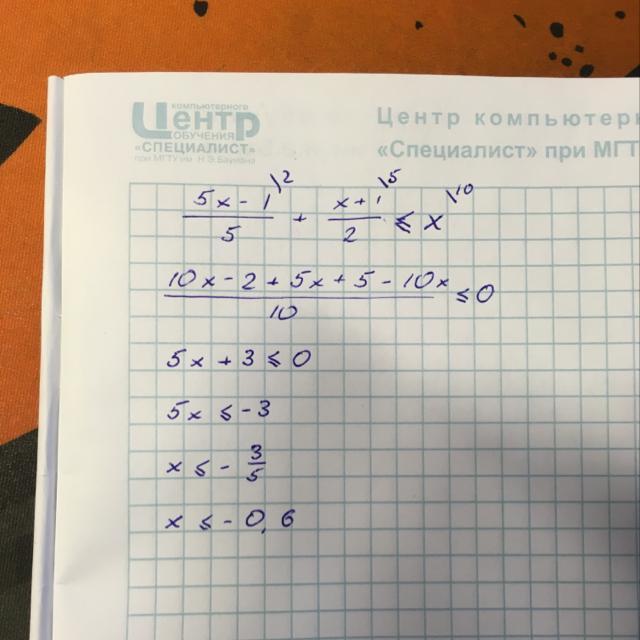 компьютерного
Центр
ОБУЧЕНИЯ
«СПЕЦИАЛИСТ»
при МГТУ им. Н.Э.Баумана
Центр компьютерн
«Специалист» при МГТ
(5x - 1)/5 \2 + (x + 1)/2 \5 ≤ x \10
(10x - 2 + 5x + 5 - 10x)/10 ≤ 0
5x + 3 ≤ 0
5x ≤ -3
x ≤ - 3/5
x ≤ - 0,6